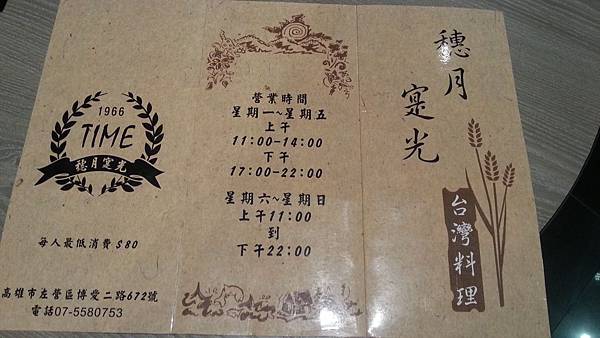 穗月
寔光
台灣料理
營業時間
星期一~星期五
上午
11:00-14:00
下午
17:00-22:00
星期六~星期日
上午11:00
到
下午22:00
1966
TIME
穗月寔光
每人最低消費$80
高雄市左營區博愛二路672號
電話07-5580753